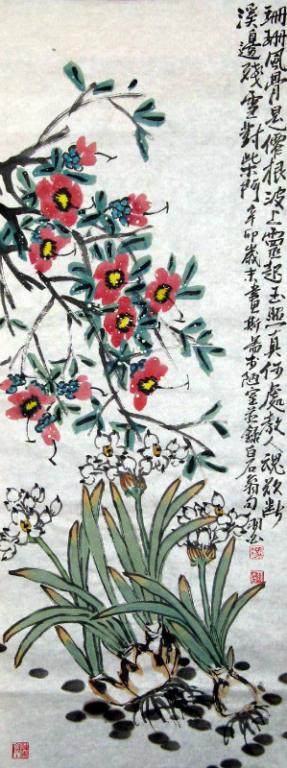 珊珊風骨是僊根波上靈起玉照真何處教人魂欲斷
溪邊殘雪對柴門辛卯歲末畫斯並書陋室并錄白石翁句